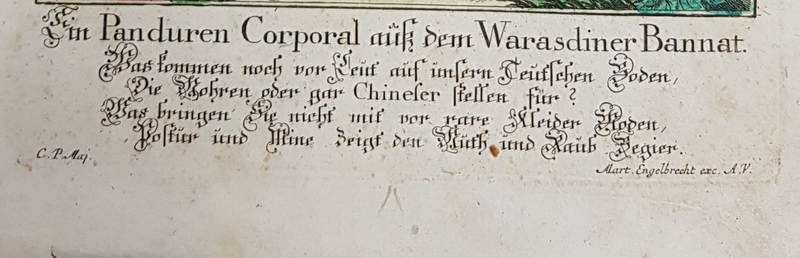 Ein Panduren Corporal auß dem Warasdiner Bannat.
Was kommen noch vor Leut auf unsern Teutschen Boden,
Die Mohren oder gar Chineser stellen für?
Was bringen Sie nicht mit vor rare Kleider Moden,
Postur und Mine zeigt den Muth und Raub Begier.
C. P. Maj.
Mart. Engelbrecht exc. A.V.